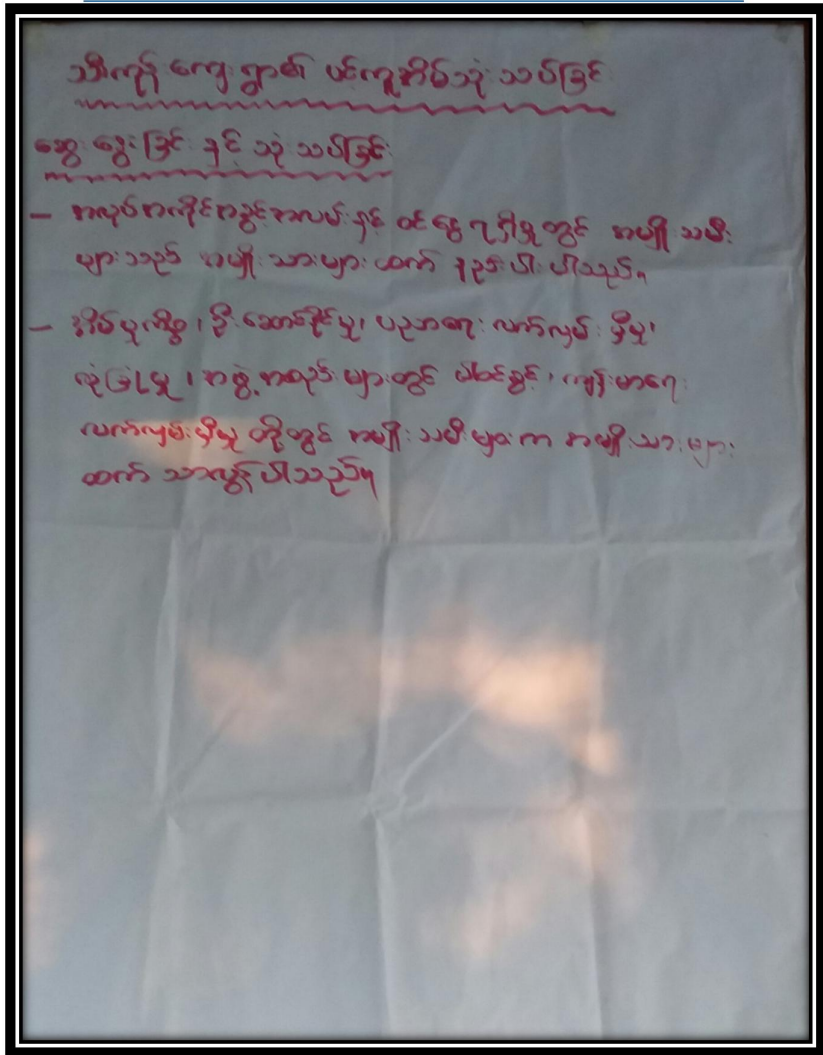 သီးကုန်း ကျေးရွာ၏ ပင်ကူအိမ်သုံးသပ်ခြင်း
ဆွေးနွေးခြင်း နှင့် သုံးသပ်ခြင်း
- အလုပ်အကိုင်အခွင့်အလမ်းနှင့် ဝင်ငွေရရှိမှုတွင် အမျိုးသမီး
များသည် အမျိုးသားများထက် နည်းပါးပါသည်။
- အိမ်မှုကိစ္စ၊ ဦးဆောင်နိုင်မှု၊ ပညာရေး လက်လှမ်းမှီမှု၊
လုံခြုံမှု၊ အဖွဲ့အစည်းများတွင် ပါဝင်ခွင့်၊ ကျန်းမာရေး
လက်လှမ်းမှီမှု တို့တွင် အမျိုးသမီးများက အမျိုးသားများ
ထက် သာလွန်ပါသည်။